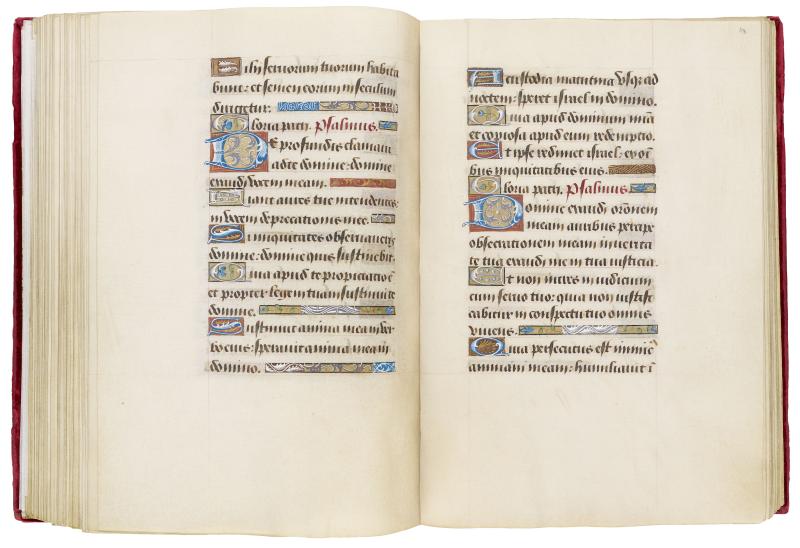 Filii servorum tuorum habita
bunt: et semen eorum in seculum
dirigetur.
Gloria patri. Psalmus.
De profundis clamavi
ad te domine: domine
exaudi vocem meam.
Fiant aures tue intendentes:
in vocem deprecationis mee.
Si iniquitates observaveris
domine: domine quis sustinebit.
Quia apud te propiciatio ē
et propter legem tuam sustinui te
domine.
Sustinuit anima mea in ver
bo eius: speravit anima mea in
domino.
A custodia matutina usque ad
noctem: speret israel in domino.
Quia apud dominum mīa
et copiosa apud eum redemptio.
Et ipse redimet israel: ex om̄i
bus iniquitatibus eius.
Gloria patri. Psalmus.
Domine exaudi orōnem
meam auribus percipe
obsecrationem meam in verita
te tua exaudi me in tua iusticia.
Et non intres in iudicium
cum servo tuo: quia non iustifi
cabitur in conspectu tuo omnis
vivens.
Quia persecutus est inimic
animam meam: humiliavit ī